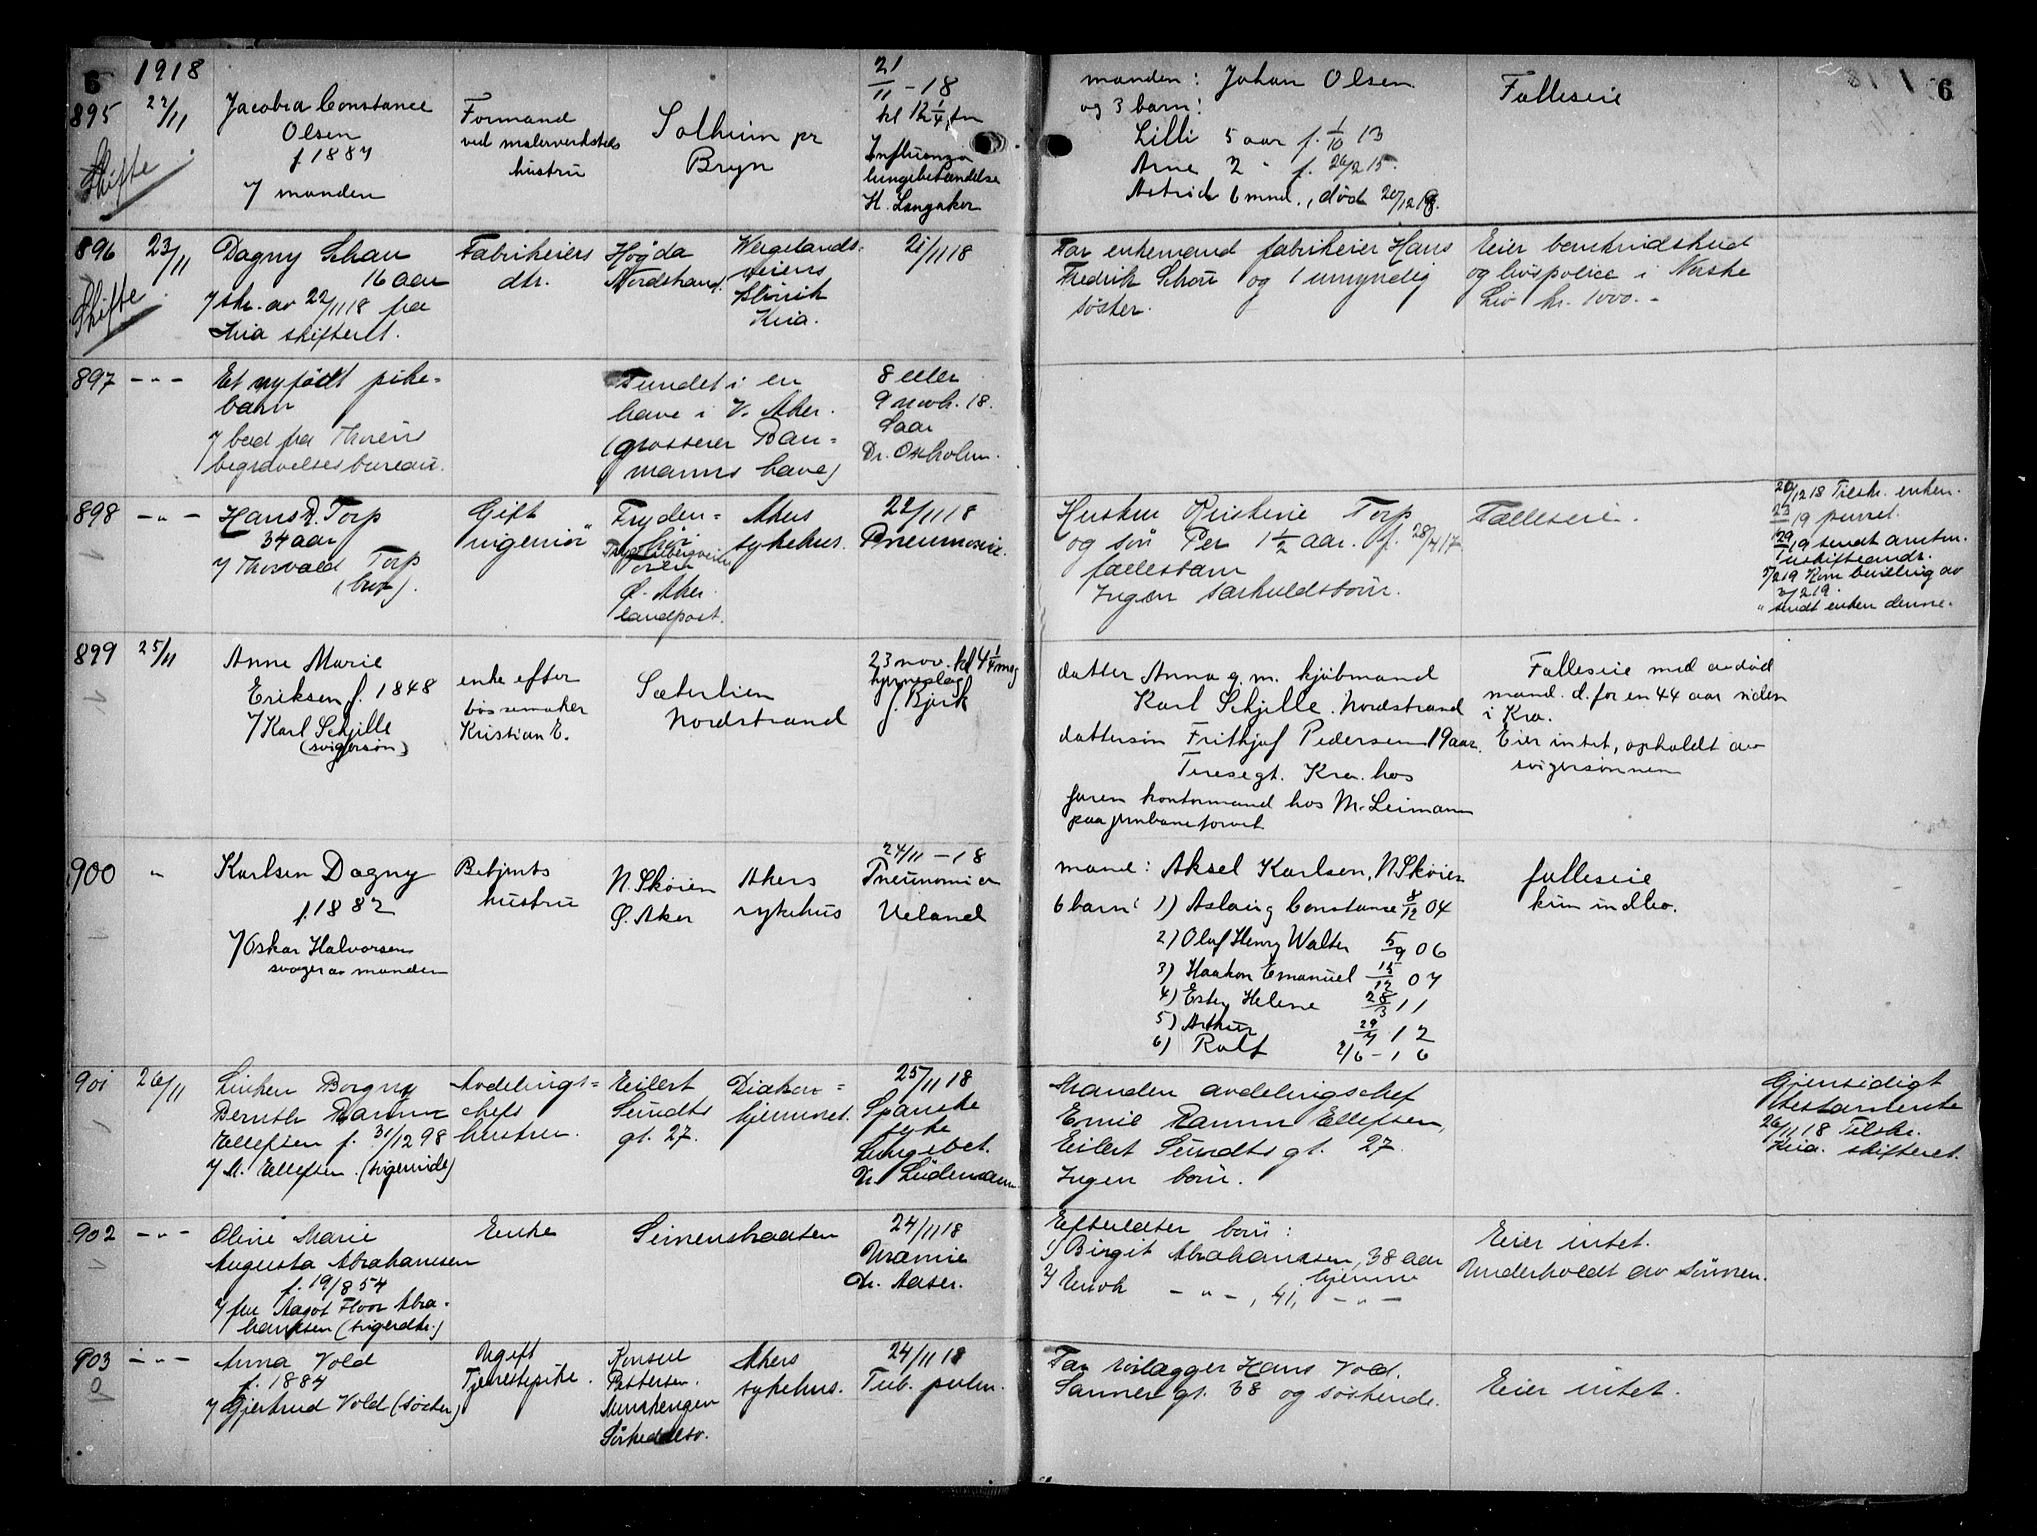 6
1918
895
22/11
Jacobea Constance
Olsen
f. 1887
v/ manden
Skifte
Formand
ved malerverksteds
hustru
Solheim pr
Bryn
21/11 - 18
kl 12 1/4 fm
Influenza
lungebetændelse
H. Langaker
manden: Johan Olsen
og 3 barn:
Lilli 5 aar f. 1/10 13
Arne 2 " f. 26/2 15.
Astrid 6 mnd., død 20/12 18.
Fælleseie
6
896
23/11
Dagny Schou
16 aar
v/ skr. av 22/11 18 fra
Kria skifterett.
Skifte
Fabrikeiers
dtr.
Høgda
Nordstrand.
Wergelands-
veiens
klinik
Kria.
21/11 18
Far enkemand fabrikeier Hans
Fredrik Schou og 1 umyndig
søster.
Eier
og livspolice i Norske
Liv kr. 1000.-
897
- " -
Et nyfødt pike-
barn
v/ bud fra Thorens
begravelsesbureau.
Fundet i en
have i V. Aker.
(grosserer Bau-
manns have)
8 eller
9 novb. 18.
Dr. Oxholm.
898
- " -
Hans R. Torp
34 aar
v/ Thorvald Torp
(bror).
Gift
ingeniør
Fryden-
Ø. Aker
landpost.
Akers
sykehus.
22/11 18
Pneumonie.
Hustru Kristine Torp
og søn Per 1 1/2 aar. f. 28/4 17
fællesbarn
Ingen særkuldsbørn.
Fælleseie.
20/12 18 Tilskr. enken.
23/1 19 purret.
29/1 19 sendt amtm.
uskifteandr.
5/2 19 Kom bevilling av
3/2 19.
" sendt enken denne.
899
25/11
Anne Marie
Eriksen f. 1848
v/ Karl Schjelle
(svigersøn)
enke efter
bøssemaker
Kristian E.
Sæterlien
Nordstrand
23 nov. kl 4 1/4 mrg
hjerneslag
J. Bjørk
datter Anna g. m. kjøbmand
Karl Schjelle. Nordstrand
dattersøn Frithjof Pedersen 19 aar.
Teresegt. Kra. hos
faren kontormand hos M. Leimann
paa jernbanetorvet
Fælleseie med avdød
mand. d. for en 44 aar siden
i Kra.
Eier intet, opholdt av
svigersønnen
900
"
Karlsen Dagny
f. 1882
v/ Oskar Halvorsen
svoger av manden
Betjents
hustru
N. Skøien
Ø. Aker
Akers
sykehus
24/11 - 18
Pneumonien
Ueland
mand: Aksel Karlsen, N. Skøien
6 barn: 1) Aslaug Constance 8/12 04
2) Oluf Henry Walter 5/9 06
3) Haakon Emanuel 15/12 07
4) Ester Helene 28/3 11
5) Arthur 29/4 12
6) Rolf 2/6 - 16
fælleseie
kun indbo.
901
26/11
Linken Borgny
Bernth Ramm
Ellefsen f. 31/12 98
v/ M. Ellefsen (svigerinde)
Avdelings-
chefs
hustru.
Eilert
Sundts
gt. 27.
Diakon-
hjemmet.
25/11 18
Spanske
syke
Lungebet.
Dr. Lüdemann
Manden avdelingschef
Emil Ramm Ellefsen,
Eilert Sundts gt. 27.
Ingen børn.
Gjensidigt
testamente
26/11 18 Tilskr.
Kria. skifteret.
902
- " -
Oline Marie
Augusta Abrahamsen
f. 19/8 54
v/ fru Aagot Floor Abra-
hamsen (svigerdtr.)
Enke
Simenstraaten
24/11 18
Uramie
Dr. Aaser.
Efterlater børn:
1) Birgit Abrahamsen, 38 aar
hjemme
2) Enok - " - , 41, - " -
Eier intet.
Underholdt av sønnen.
903
- " -
Anna Vold
f. 1884
v/ Gjertrud Vold (søster)
Ugift
Tjenestepike.
Konsul
Pettersen.
Sørkedalsv.
Akers
sykehus.
24/11 18
Tub. pulm.
Far veilægger Hans Vold.
Sannergt. 38 og søskende.
Eier intet.